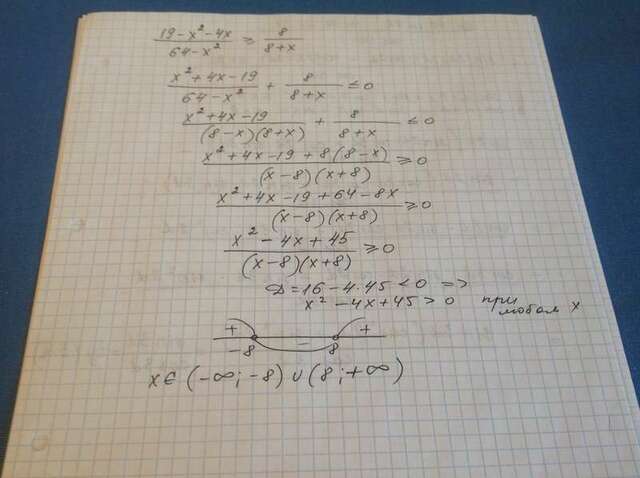 (19-x²-4x)/(64-x²) ≥ 8/(8+x)
(x²+4x-19)/(64-x²) + 8/(8+x) ≤ 0
(x²+4x-19)/((8-x)(8+x)) + 8/(8+x) ≤ 0
(x²+4x-19+8(8-x))/((x-8)(x+8)) ≥ 0
(x²+4x-19+64-8x)/((x-8)(x+8)) ≥ 0
(x²-4x+45)/((x-8)(x+8)) ≥ 0
D=16-4·45<0 =>
x²-4x+45>0 при любом x
+ - +
-8 8
x∈(-∞;-8)∪(8;+∞)